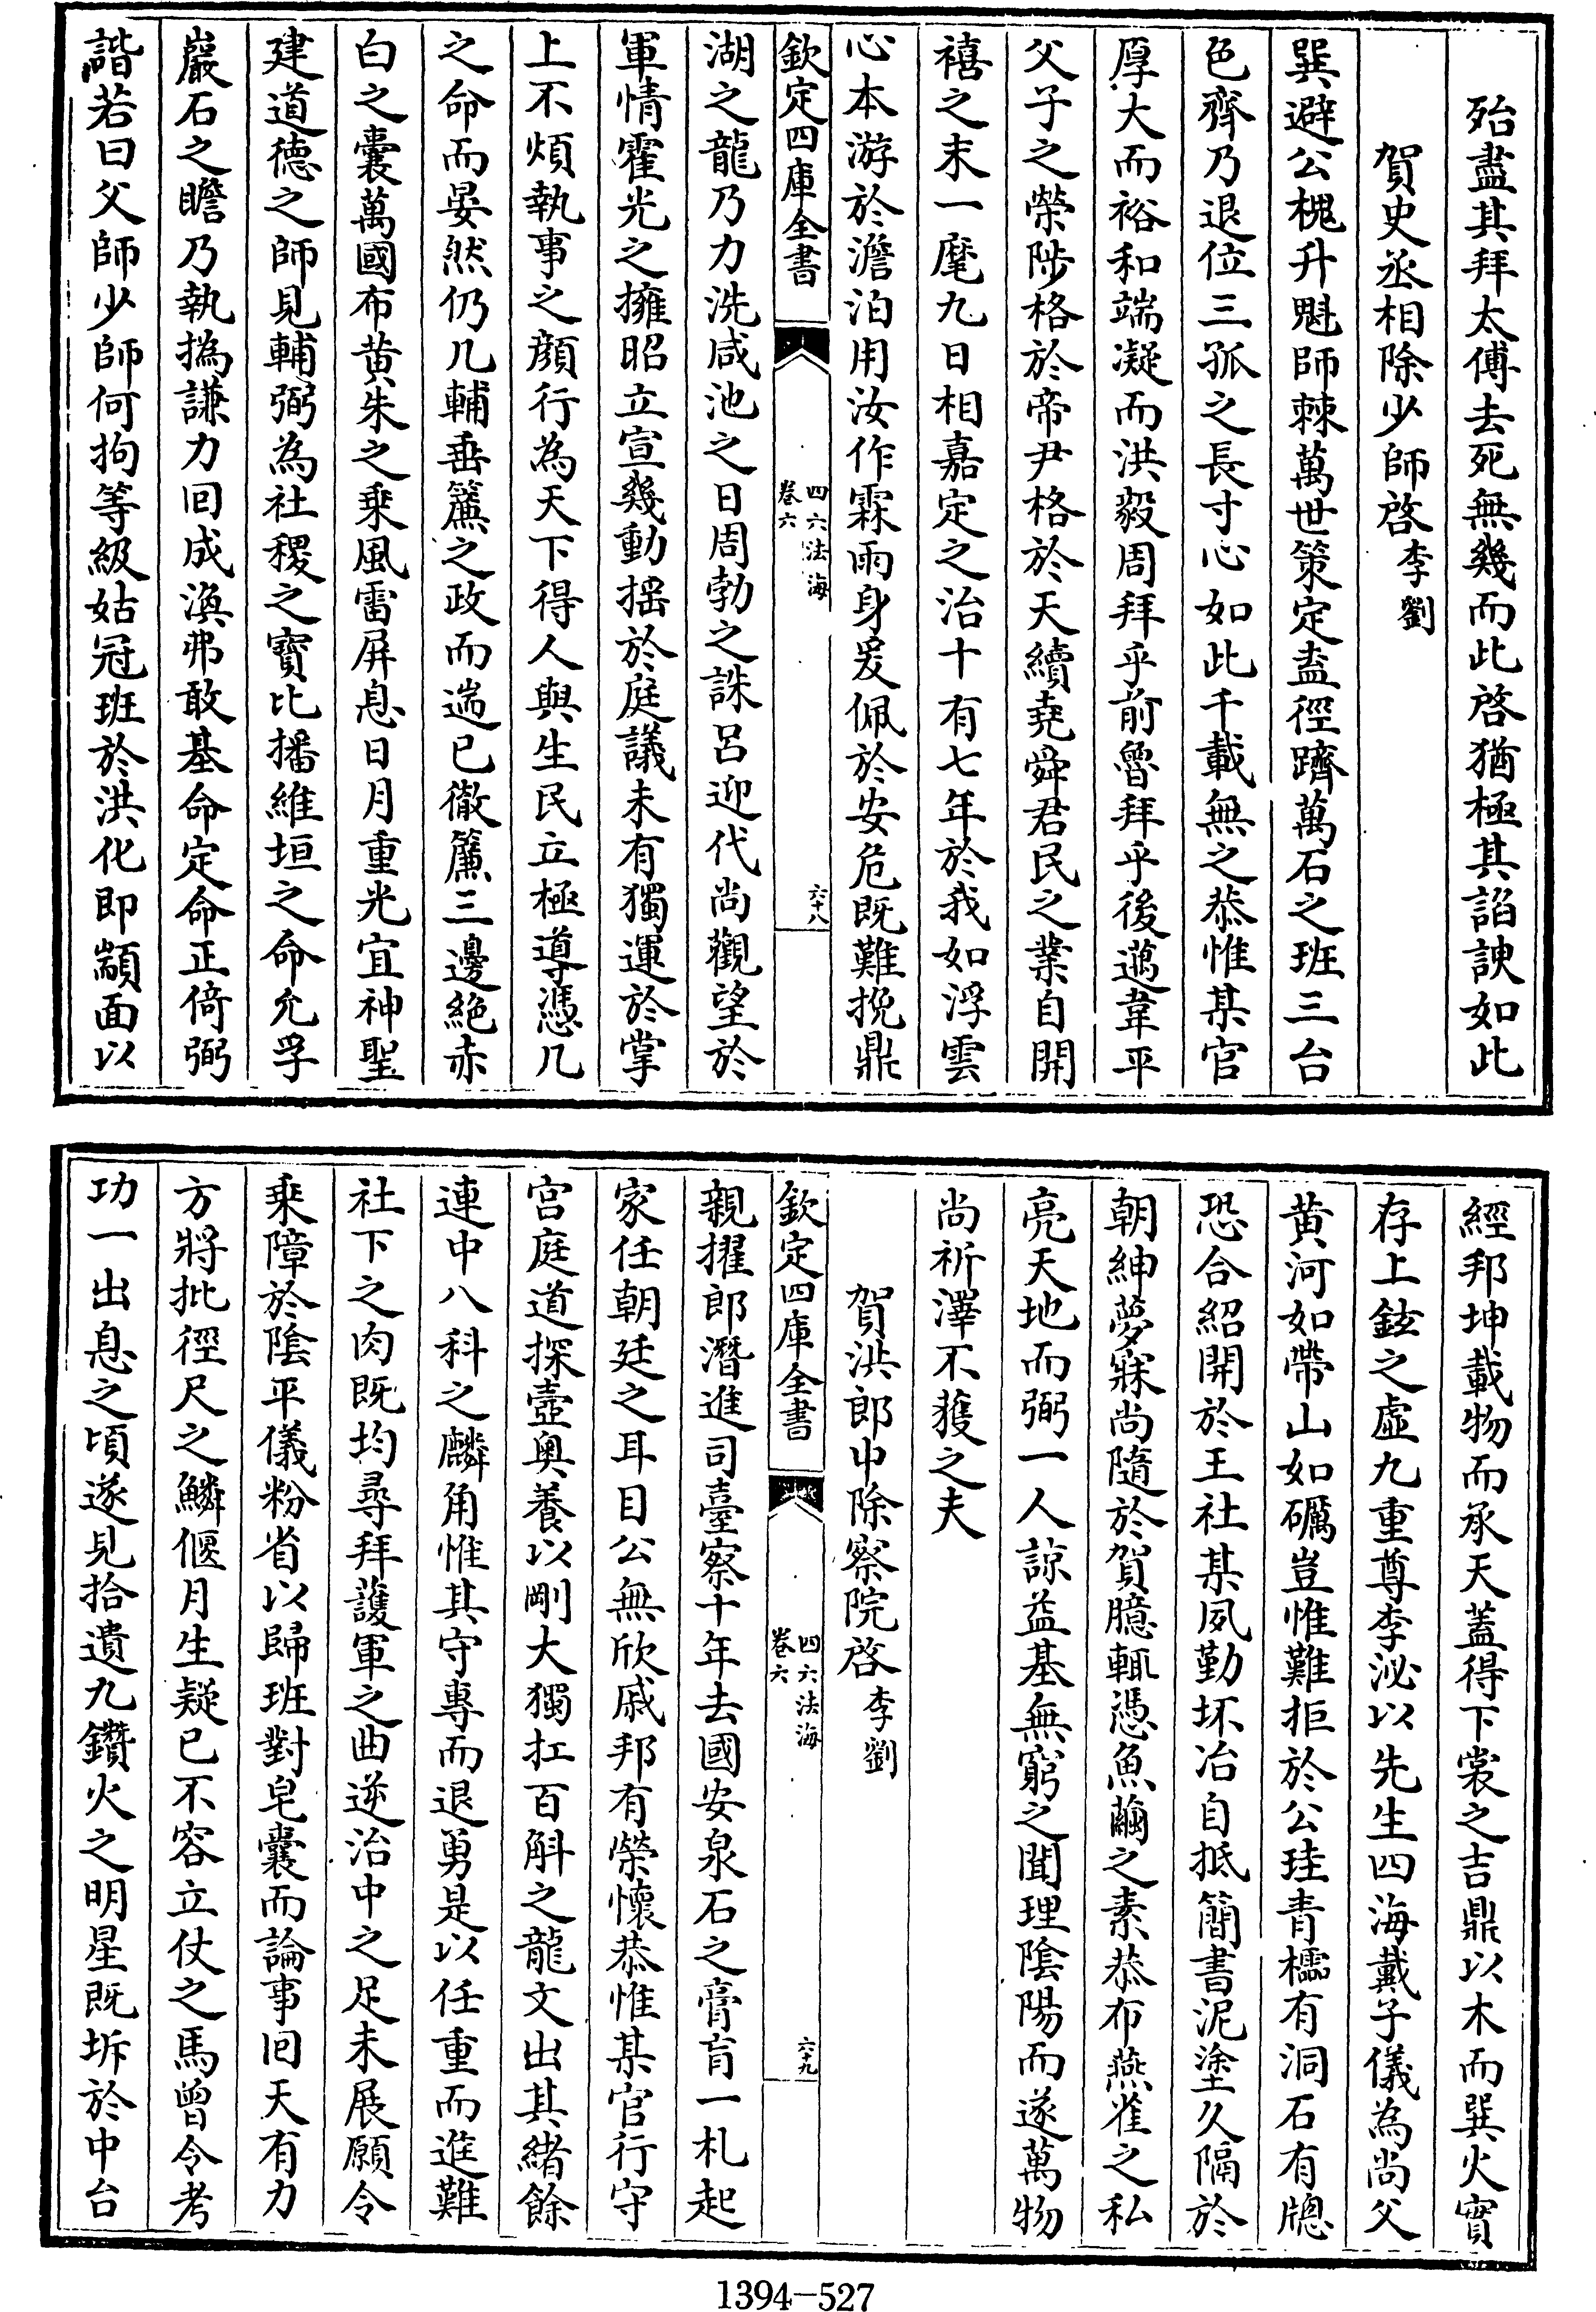 殆盡其拜太傅去死無幾而此啓猶極其諂諛如此
賀史丞相除少師啓李劉
巽避公槐升魁師棘萬世策定盍徑躋萬石之班三台
色齊乃退位三孤之長寸心如此千載無之恭惟某官
厚大而裕和端凝而洪毅周拜乎前魯拜乎後邁韋平
父子之榮陟格於帝尹格於天續堯舜君民之業自開
禧之末一麾九日相嘉定之治十有七年於我如浮雲
心本游於澹泊用汝作霖雨身爰佩於安危既難挽鼎
欽定四庫全書
四六法海
卷六
六十八
湖之龍乃力洗咸池之日周勃之誅呂迎代尚觀望於
軍情霍光之擁昭立宣幾動摇於庭議未有獨運於掌
上不煩執事之顔行為天下得人與生民立極導憑几
之命而晏然仍几輔垂簾之政而遄已徹簾三邊絶赤
白之囊萬國布黄朱之乘風雷屏息日月重光宜神聖
建道德之師見輔弼為社稷之寶比播維垣之命允孚
巖石之瞻乃執撝謙力回成渙弗敢基命定命正倚弼
諧若曰父師少師何拘等級姑冠班於洪化即顓面以
經邦坤載物而承天蓋得下裳之吉鼎以木而巽火實
存上鉉之虚九重尊李泌以先生四海戴子儀為尚父
黄河如帶山如礪豈惟難拒於公珪青檽有洞石有牕
恐合紹開於王社某夙勤坏冶自抵簡書泥塗久隔於
朝紳夢寐尚隨於賀臆輒憑魚繭之素恭布燕雀之私
亮天地而弼一人諒益基無窮之聞理陰陽而遂萬物
尚祈澤不獲之夫
賀洪郎中除察院啓李劉
欽定四庫全書
四六法海
卷六
六十九
親擢郎潛進司臺察十年去國安泉石之膏肓一札起
家任朝廷之耳目公無欣戚邦有榮懷恭惟某官行守
宫庭道探壼奥養以剛大獨扛百斛之龍文出其緒餘
連中八科之麟角惟其守專而退勇是以任重而進難
社下之肉既均尋拜護軍之曲逆治中之足未展願令
乘障於陰平儀粉省以歸班對皂囊而論事回天有力
方將批徑尺之鱗偃月生疑已不容立仗之馬曾令考
功一出息之頃遂見拾遺九鑽火之明星既坼於中台
1394-527